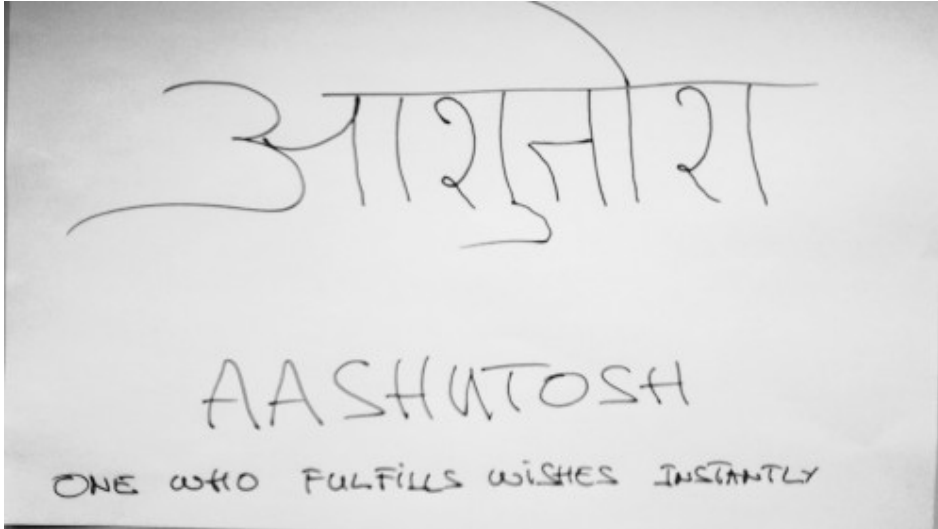 आशुतोश
AASHUTOSH
ONE WHO FULFILLS WISHES INSTANTLY